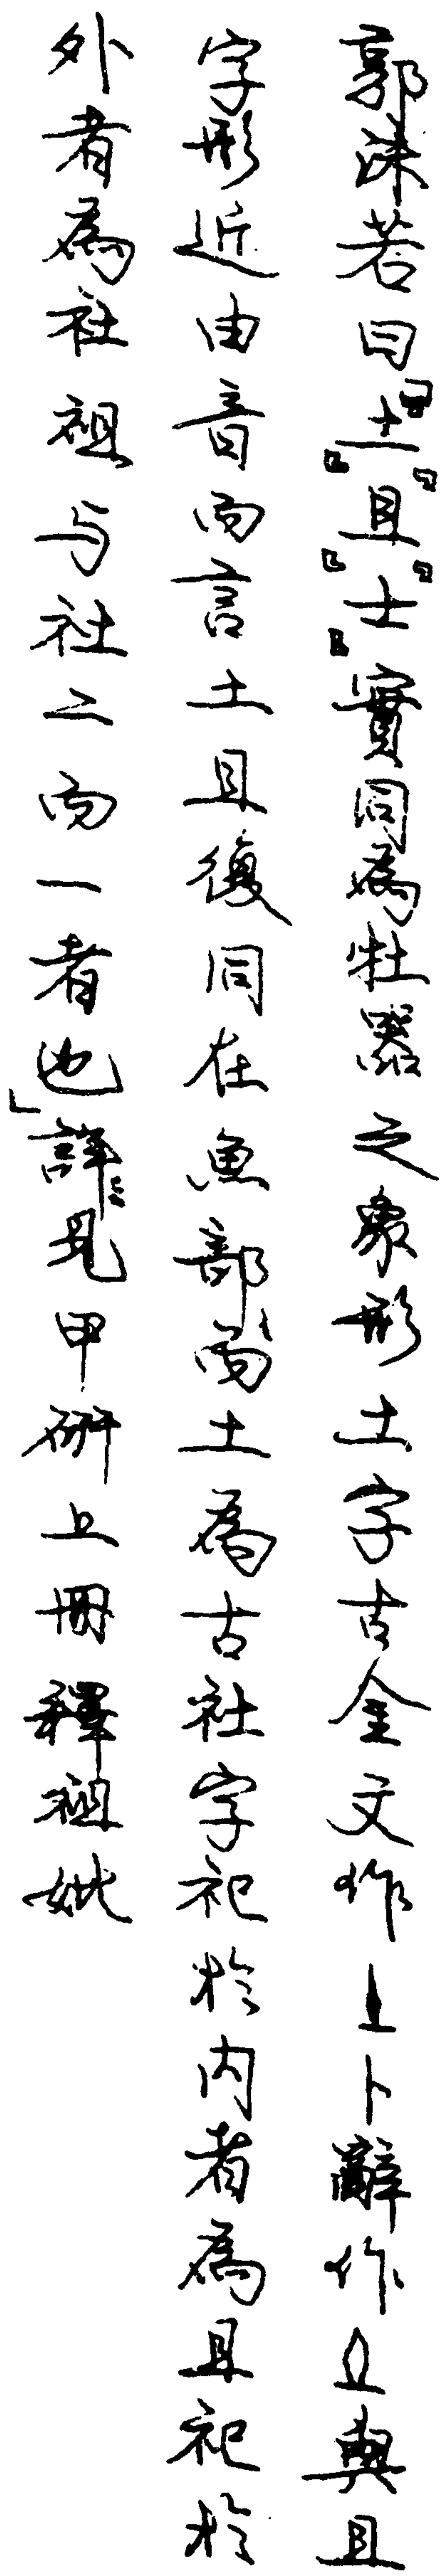 郭沫若曰「『土』『且』『士』實同為牡器之象形土字古金文作⊥卜辭作⊥與且
字形近由音而言土且復同在魚部而土為古社字祀於内者為且祀於
外者為社祖与社二而一者也」詳見甲研上冊釋祖妣